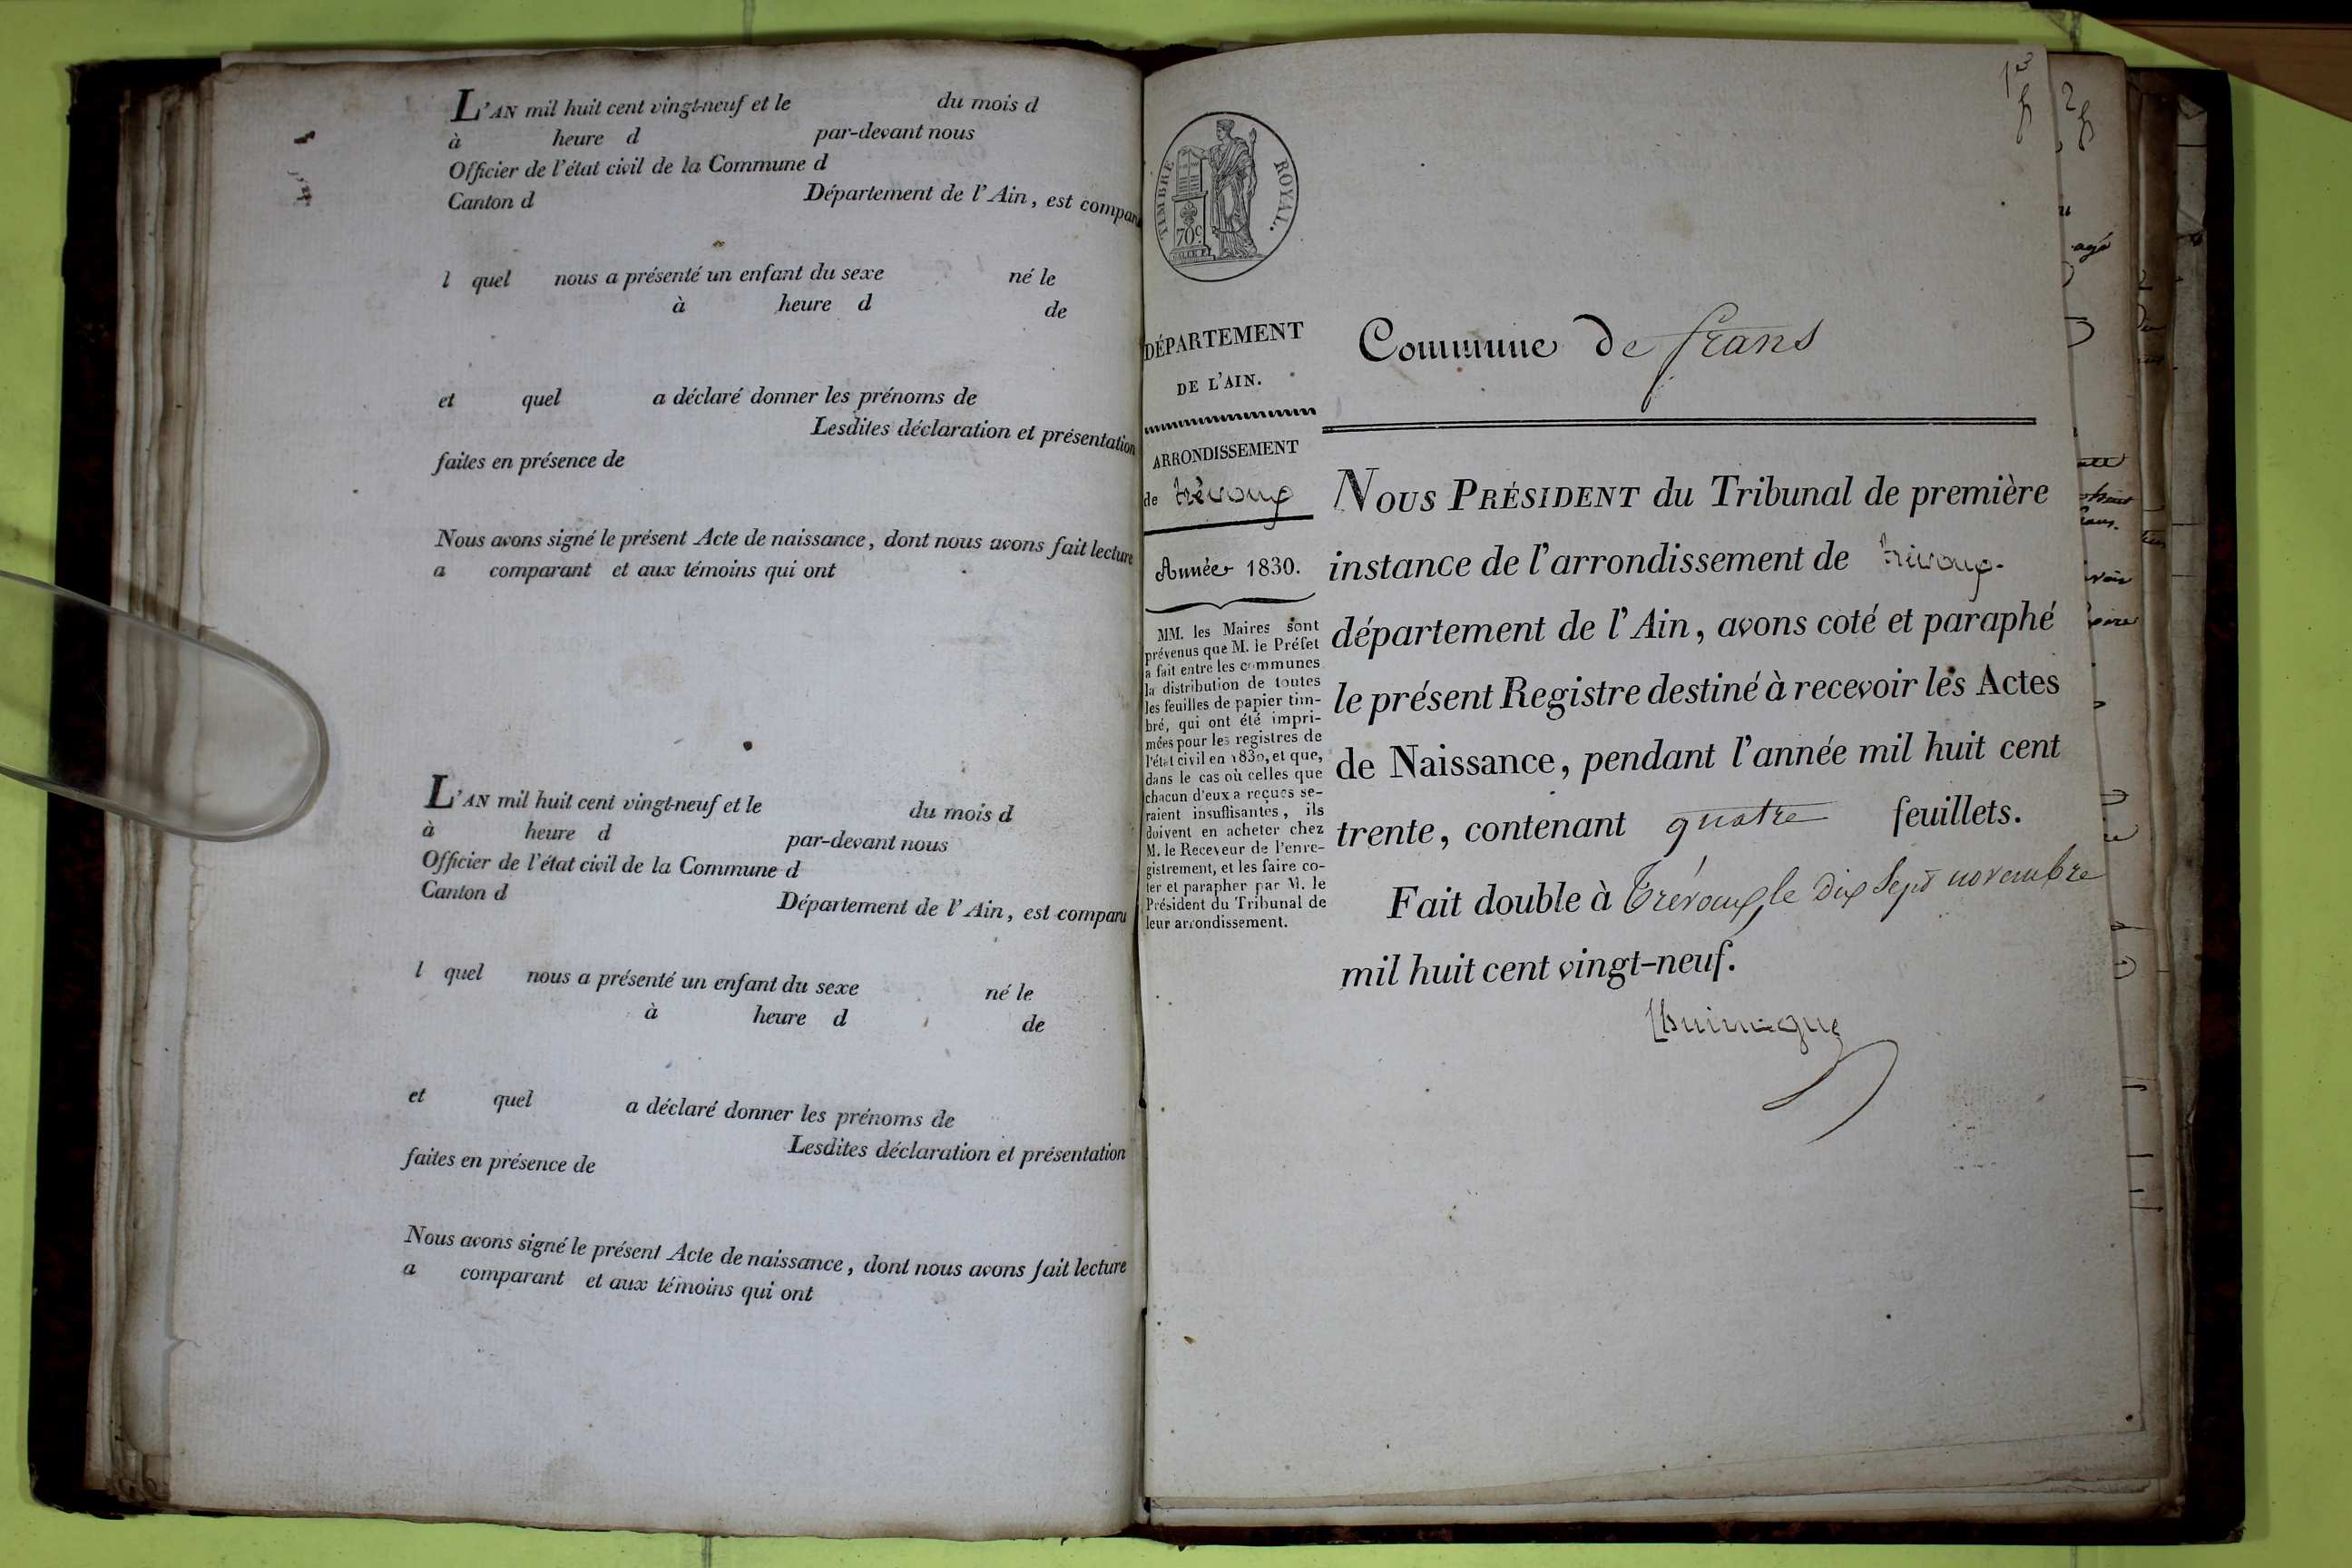 L'AN mil huit cent vingt-neuf et le du mois d
à heure d par-devant nous
Officier de l'état civil de la Commune d
Canton d Département de l'Ain, est comparu
l quel nous a présenté un enfant du sexe né le
à heure d de
et quel a déclaré donner les prénoms de
Lesdites déclaration et présentation
faites en présence de
Nous avons signé le présent Acte de naissance, dont nous avons fait lecture
a comparant et aux témoins qui ont
L'AN mil huit cent vingt-neuf et le du mois d
à heure d par-devant nous
Officier de l'état civil de la Commune d
Canton d Département de l'Ain, est comparu
l quel nous a présenté un enfant du sexe né le
à heure d de
et quel a déclaré donner les prénoms de
Lesdites déclaration et présentation
faites en présence de
Nous avons signé le présent Acte de naissance, dont nous avons fait lecture
a comparant et aux témoins qui ont
TIMBRE ROYAL.
70c
DÉPARTEMENT
DE L'AIN.
ARRONDISSEMENT
de trévoux
Année 1830.
MM. les Maires sont
prévenus que M. le Préfet
a fait entre les communes
la distribution de toutes
les feuilles de papier tim-
bré, qui ont été impri-
mées pour les registres de
l'état civil en 1830, et que,
dans le cas où celles que
chacun d'eux a reçues se-
raient insuffisantes, ils
doivent en acheter chez
M. le Receveur de l'enre-
gistrement, et les faire co-
ter et parapher par M. le
Président du Tribunal de
leur arrondissement.
1er
Commune de frans
NOUS PRÉSIDENT du Tribunal de première
instance de l'arrondissement de trévoux.
département de l'Ain, avons coté et paraphé
le présent Registre destiné à recevoir les Actes
de Naissance, pendant l'année mil huit cent
trente, contenant quatre feuillets.
Fait double à Trévoux, le dix sept novembre
mil huit cent vingt-neuf.
2
agé